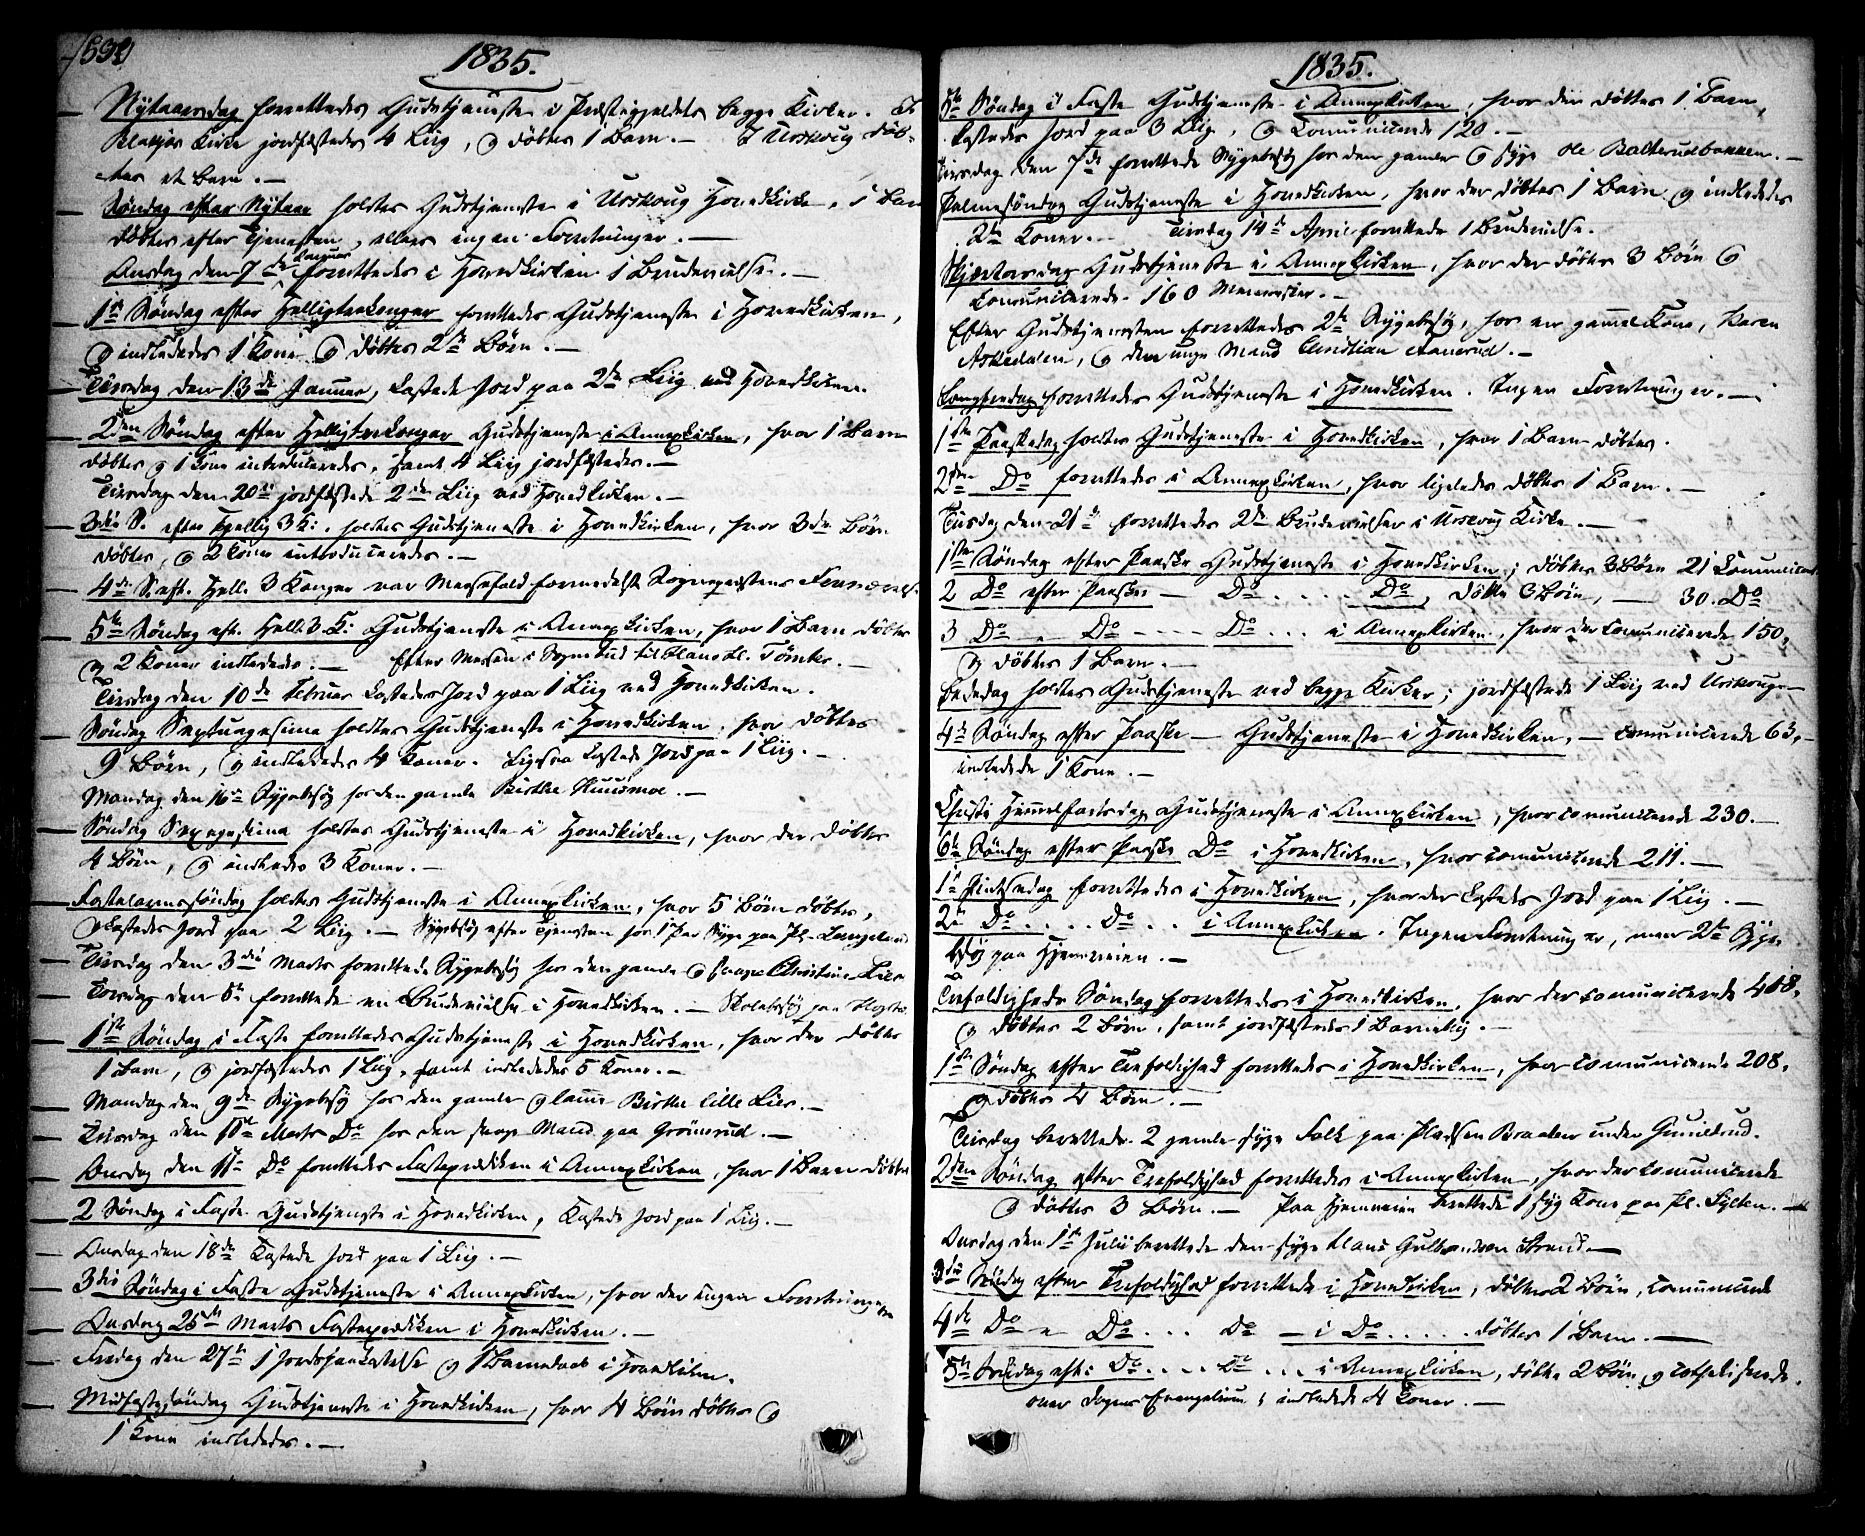 1835.
Nytaarsdag forrettedes Gudstjeneste i Præstegjeldets begge Kirker. I
Blakjer Kirke jordfæstedes 4 Liig, og døbtes 1 Barn. — I Urskoug døb-
tes et barn. —
Søndag efter Nytaar holdtes Gudstjeneste i Urskoug Hovedkirke, 1 Barn
døbtes efter Tjenesten, ellers ingen Forretninger. —
Onsdag den 7de Januar forrettedes i Hovedkirken 1 Brudevielse. —
1ste Søndag efter Helligtrekonger forrettedes Gudstjeneste i Hovedkirken,
og indlededes 1 Kone og døbtes 2de Børn. —
Tirsdag den 13de Januar, kastede Jord paa 2de Liig ved Hovedkirken.
2den Søndag efter Helligtrekonger Gudstjeneste i Annexkirken, hvor 1 Barn
døbtes og 1 Kone introduceredes, samt 4 Liig jordfæstedes. —
Tirsdag den 20de jordfæstede 2de Liig ved Hovedkirken. —
3die S. efter Hellig 3 K. holdtes Gudstjeneste i Hovedkirken, hvor 3de Børn
døbtes, og 2 Koner introduceredes. —
4de S. eft. Hell. 3 Konger var Messefald formedelst Sognepræstens
5te Søndag eft. Hell. 3 K. Gudstjeneste i Annexkirken, hvor 1 Barn døbtes
og 2 Koner indlededes. — Efter Messen i Sognebud til Hans
Tirsdag den 10de Februar kastedes Jord paa 1 Liig ved Hovedkirken.
Søndag Septuagesima holdtes Gudstjeneste i Hovedkirken, hvor døbtes
9 Børn, og indlededes 4 Koner. Ligesaa kastedes Jord paa 1 Liig. —
Mandag den 16de Sygebesøg hos den gamle Birthe Huusmoe. —
Søndag Sexagesima holdtes Gudstjeneste i Hovedkirken, hvor der døbtes
4 Børn, og indledes 3 Koner. —
Fastelavnssøndag holdtes Gudstjeneste i Annexkirken, hvor 5 Børn døbtes,
og kastedes Jord paa 2 Liig. — Sygebesøg efter Tjenesten hos 1 Par Syge paa Pl.
Tirsdag den 3die Marts forrettede Sygebesøg hos den gamle og svage Christine Lier
Torsdag den 5te forrettede en Brudevielse i Hovedkirken. — Skolebesøg paa
1ste Søndag i Faste forrettedes Gudstjeneste i Hovedkirken, hvor der døbtes
1 Barn, og jordfæstedes 1 Liig, samt indlededes 5 Koner. —
Mandag den 9de Sygebesøg hos den gamle og Birthe lille Lier. —
Tirsdag den 10de Marts Do hos den Mand paa Grønsrud. —
Onsdag den 11te Do forrettedes Fasteprædiken i Annexkirken, hvor 1 Barn døbtes
2 Søndag i Faste Gudstjeneste i Hovedkirken, kastede Jord paa 1 Liig. —
Onsdag den 18de kastede Jord paa 1 Liig. —
3die Søndag i Faste Gudstjeneste i Annexkirken, hvor der ingen Forretninger
Onsdag 25de Marts Fasteprædiken i Hovedkirken. —
Fredag den 27de 1 Jordspaakastelse og 1 Barnedaab i Hovedkirken.
Midfastesøndag Gudstjeneste i Hovedkirken, hvor 4 Børn døbtes og
1 Kone indlededes. —
1835.
5te Søndag i Faste Gudstjeneste i Annexkirken, hvor der døbtes 1 Barn,
kastedes Jord paa 3 Liig, og Communicerede 120. —
Tirsdag den 7de forrettede Sygebesøg hos den gamle og syge Ole Balterudbakken. —
Palmesøndag Gudstjeneste i Hovedkirken, hvor der døbtes 1 Barn og indlededes
2de Koner. — Tirsdag 14de April forrettede 1 Brudevielse.
Skjærtorsdag Gudstjeneste i Annexkirken, hvor der døbtes 3 Børn og
Communicerede 160 Mennesker. —
Efter Gudstjenesten forrettedes 2de Sygebesøg, hos en gammel Kone, Karen
Askedalen, og den unge Mand Christian
Langfredag forrettedes Gudstjeneste i Hovedkirken. Ingen Forretninger. —
1ste Paaskedag holdtes Gudstjeneste i Hovedkirken, hvor 1 Barn døbtes.
2den Do forrettedes i Annexkirken, hvor ligeledes døbtes 1 Barn. —
Tirsdag den 21de forrettedes 2de Brudevielser i Urskoug Kirke. —
1ste Søndag efter Paaske Gudstjeneste i Hovedkirken; døbtes 3 Børn 21 Communicerede
2 Do efter Paaske — Do .... Do, døbte 3 Børn, — 30. Do
3 Do — Do ---- Do ... i Annexkirken, hvor der communicerede 150,
og døbtes 1 Barn. —
Bededag holdtes Gudstjeneste ved begge Kirker; jordfæstede 1 Liig ved Urskoug —
4de Søndag efter Paaske — Gudstjeneste i Hovedkirken, — communicerede 63, —
indledede 1 Kone. —
Christi Himmelfartsdag Gudstjeneste i Annexkirken, hvor communicerede 230. —
6te Søndag efter Paaske Do i Hovedkirken, hvor communicerede 211. —
1ste Pintsedag forrettedes i Hovedkirken, hvor der kastedes Jord paa 1 Liig. —
2den Do .... Do .. i Annexkirken. Ingen Forretninger, men 2de Syge-
besøg paa Hjemveien. —
Trefoldigheds Søndag forrettedes i Hovedkirken, hvor der communicerede 408,
og døbtes 2 Børn, samt jordfæstedes 1 Barnelig. —
1ste Søndag efter Trefoldighed forrettedes i Hovedkirken, hvor communicerede 208,
og døbtes 4 Børn. —
Tirsdag berettede 2 gamle syge Folk paa Pladsen Braaten under
2den Søndag efter Trefoldighed forrettedes i Annexkirken, hvor der communicerede
og døbtes 3 Børn. — Paa Hjemveien berettede 1 syg Kone paa Pl.
Onsdag den 1ste Julii berettede den syge Klaus Gulbrandsen Strand. —
3die Søndag efter Trefoldighed forrettede i Hovedkirken, døbtes 2 Børn, communicerede
4de Do — Do ... Do — i Do ..... døbtes 1 Barn. —
5te Søndag eft: Do .... Do ... i Annexkirken, døbte 2 Børn, og catechiserede
over Dagens Evangelium; indledede 4 Koner. —